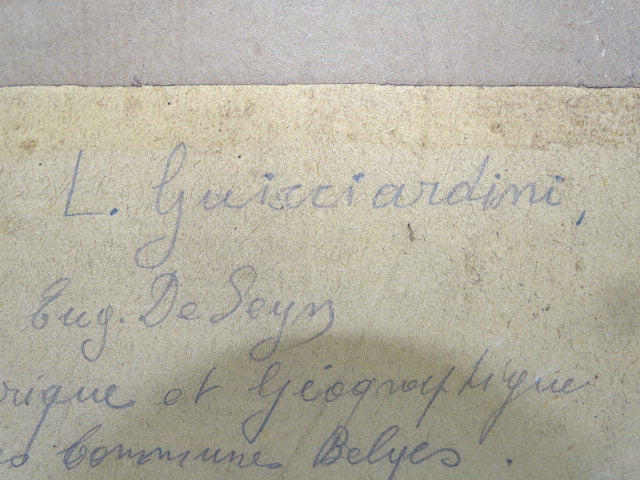 L. Guicciardini,
Eug. De Seyn
rique et Géographique
Communes Belges.